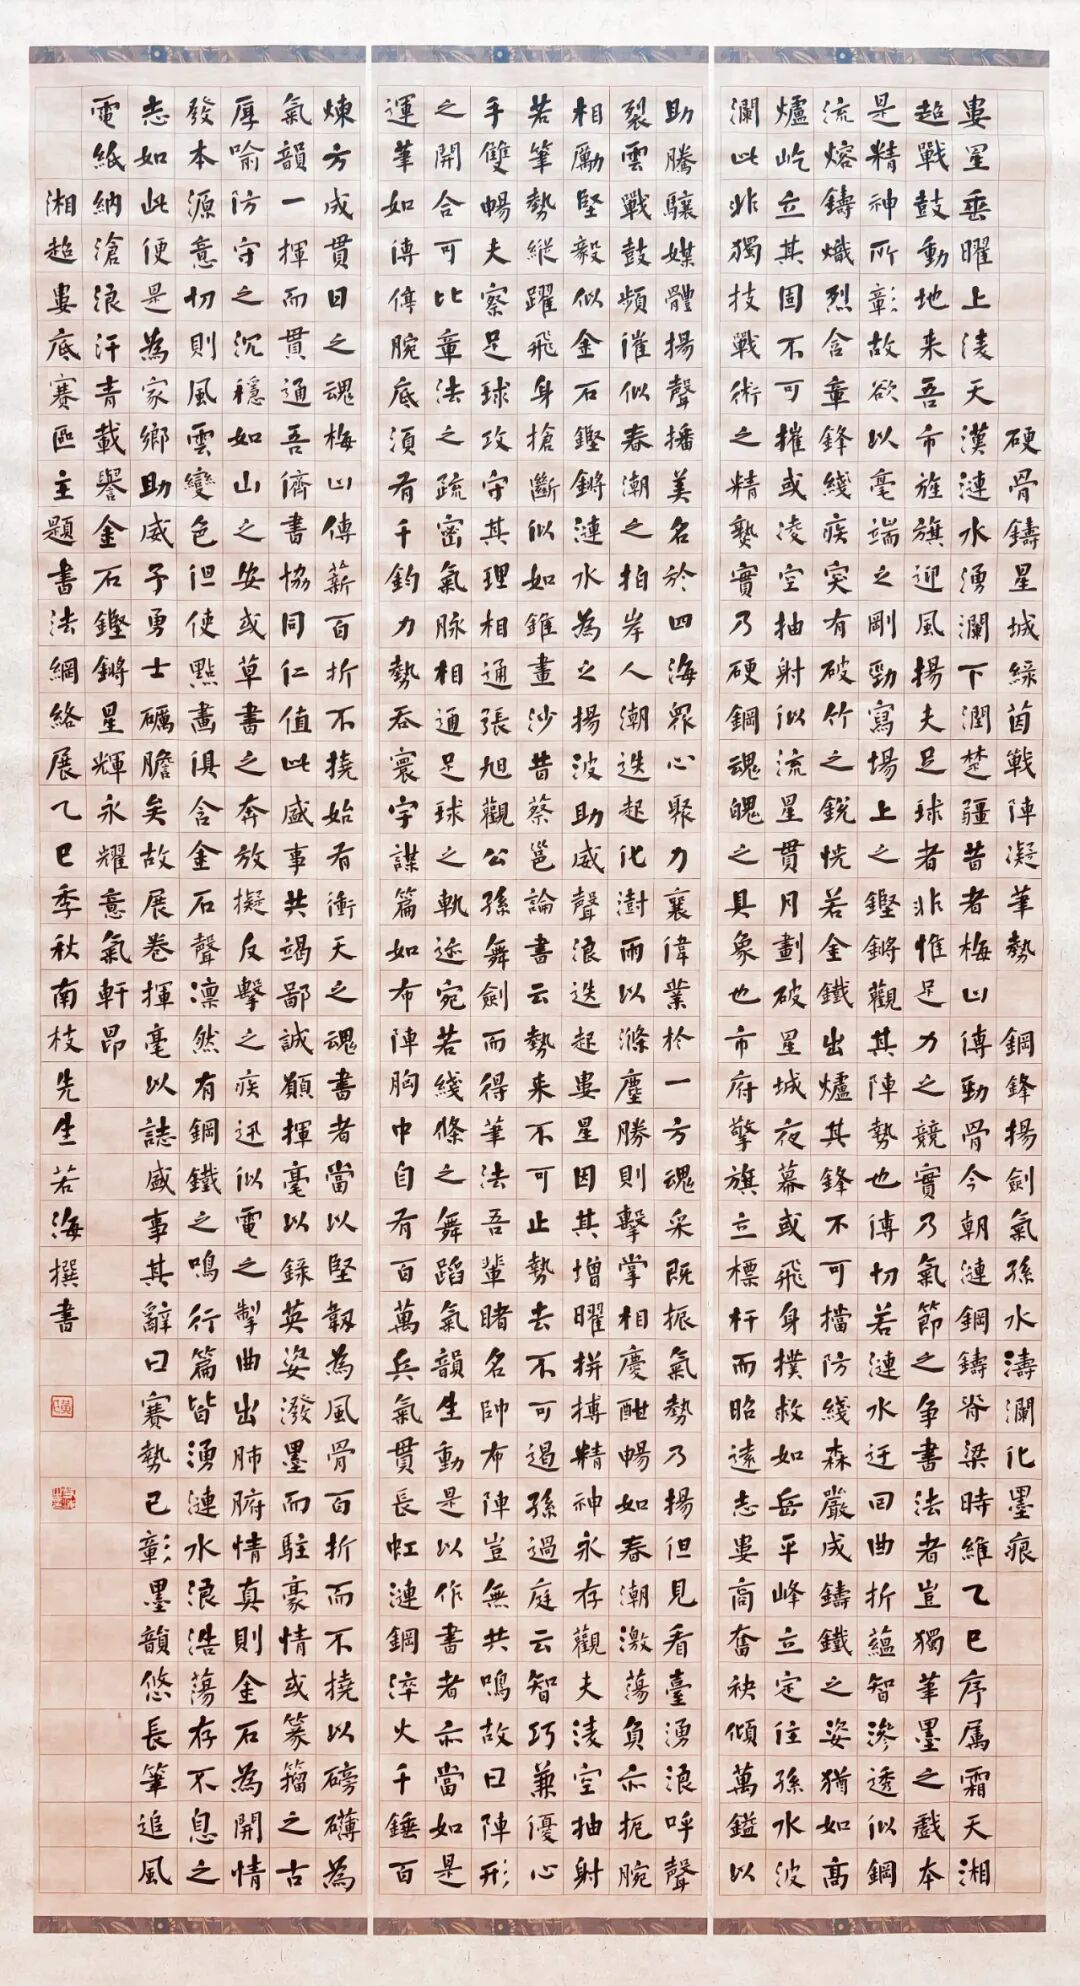 硬骨鑄星城綠茵戰陣凝筆勢 鋼鋒揚劍氣孫水濤瀾化墨痕
婁星垂曜上淩天漢漣水湧瀾下潤楚疆昔者梅山傳勁骨今朝漣鋼鑄脊梁時維乙巳序屬霜天湘
超戰鼓動地来吾市旌旗迎風揚夫足球者非惟足力之競實乃氣節之争書法者豈獨筆墨之戲本
是精神所彰故欲以毫端之剛勁寫場上之鏗鏘觀其陣勢也傳切若漣水迂回曲折蘊智滲透似鋼
流熔鑄熾烈含章鋒綫疾突有破竹之銳恍若金鐵出爐其鋒不可擋防綫森嚴成鑄鐵之姿猶如高
爐屹立其固不可摧或凌空抽射似流星貫月劃破星城夜幕或飛身撲救如岳平峰立定住孫水波
瀾此非獨技戰術之精藝實乃硬鋼魂魄之具象也市府擎旗立標杆而昭遠志婁高奮袂傾萬鎰以
助騰驤媒體揚聲播美名於四海眾心聚力襄偉業於一方魂采既振氣勢乃揚但見看臺湧浪呼聲
裂雲戰鼓頻催似春潮之拍岸人潮迭起化澍雨以滌塵勝則擊掌相慶酣暢如春潮激蕩負亦扼腕
相勵堅毅似金石鏗鏘漣水為之揚波助威聲浪迭起婁星因其增曜拼搏精神永存觀夫淩空抽射
若筆勢縱躍飛身搶斷似如錐畫沙昔蔡邕論書云勢来不可止勢去不可遏孫過庭云智巧兼優心
手雙暢夫察足球攻守其理相通張旭觀公孫舞劍而得筆法吾輩睹名帥布陣豈無共鳴故曰陣形
之開合可比章法之疏密氣脉相通足球之軌迹宛若綫條之舞蹈氣韻生動是以作書者亦當如是
運筆如傳停腕底須有千鈞力勢吞寰宇謀篇如布陣胸中自有百萬兵氣貫長虹漣鋼淬火千錘百
煉方成貫日之魂梅山傳薪百折不撓始有衝天之魂書者當以堅韌為風骨百折而不撓以磅礴為
氣韻一揮而貫通吾儕書協同仁值此盛事共竭鄙誠願揮毫以錄英姿潑墨而駐豪情或篆籀之古
厚喻防守之沉穩如山之安或草書之奔放擬反擊之疾迅似電之掣曲出肺腑情真則金石為開情
發本源意切則風雲變色但使點畫俱含金石聲凛然有鋼鐵之鳴行篇皆湧漣水浪浩蕩存不息之
志如此便是為家鄉助威子勇士礪膽矣故展卷揮毫以誌盛事其辭曰賽勢已彰墨韻悠長筆追風
電紙納滄浪汗青載譽金石鏗鏘星輝永耀意氣軒昂
湘超婁底賽區主題書法網絡展乙巳季秋南枝先生若海撰書